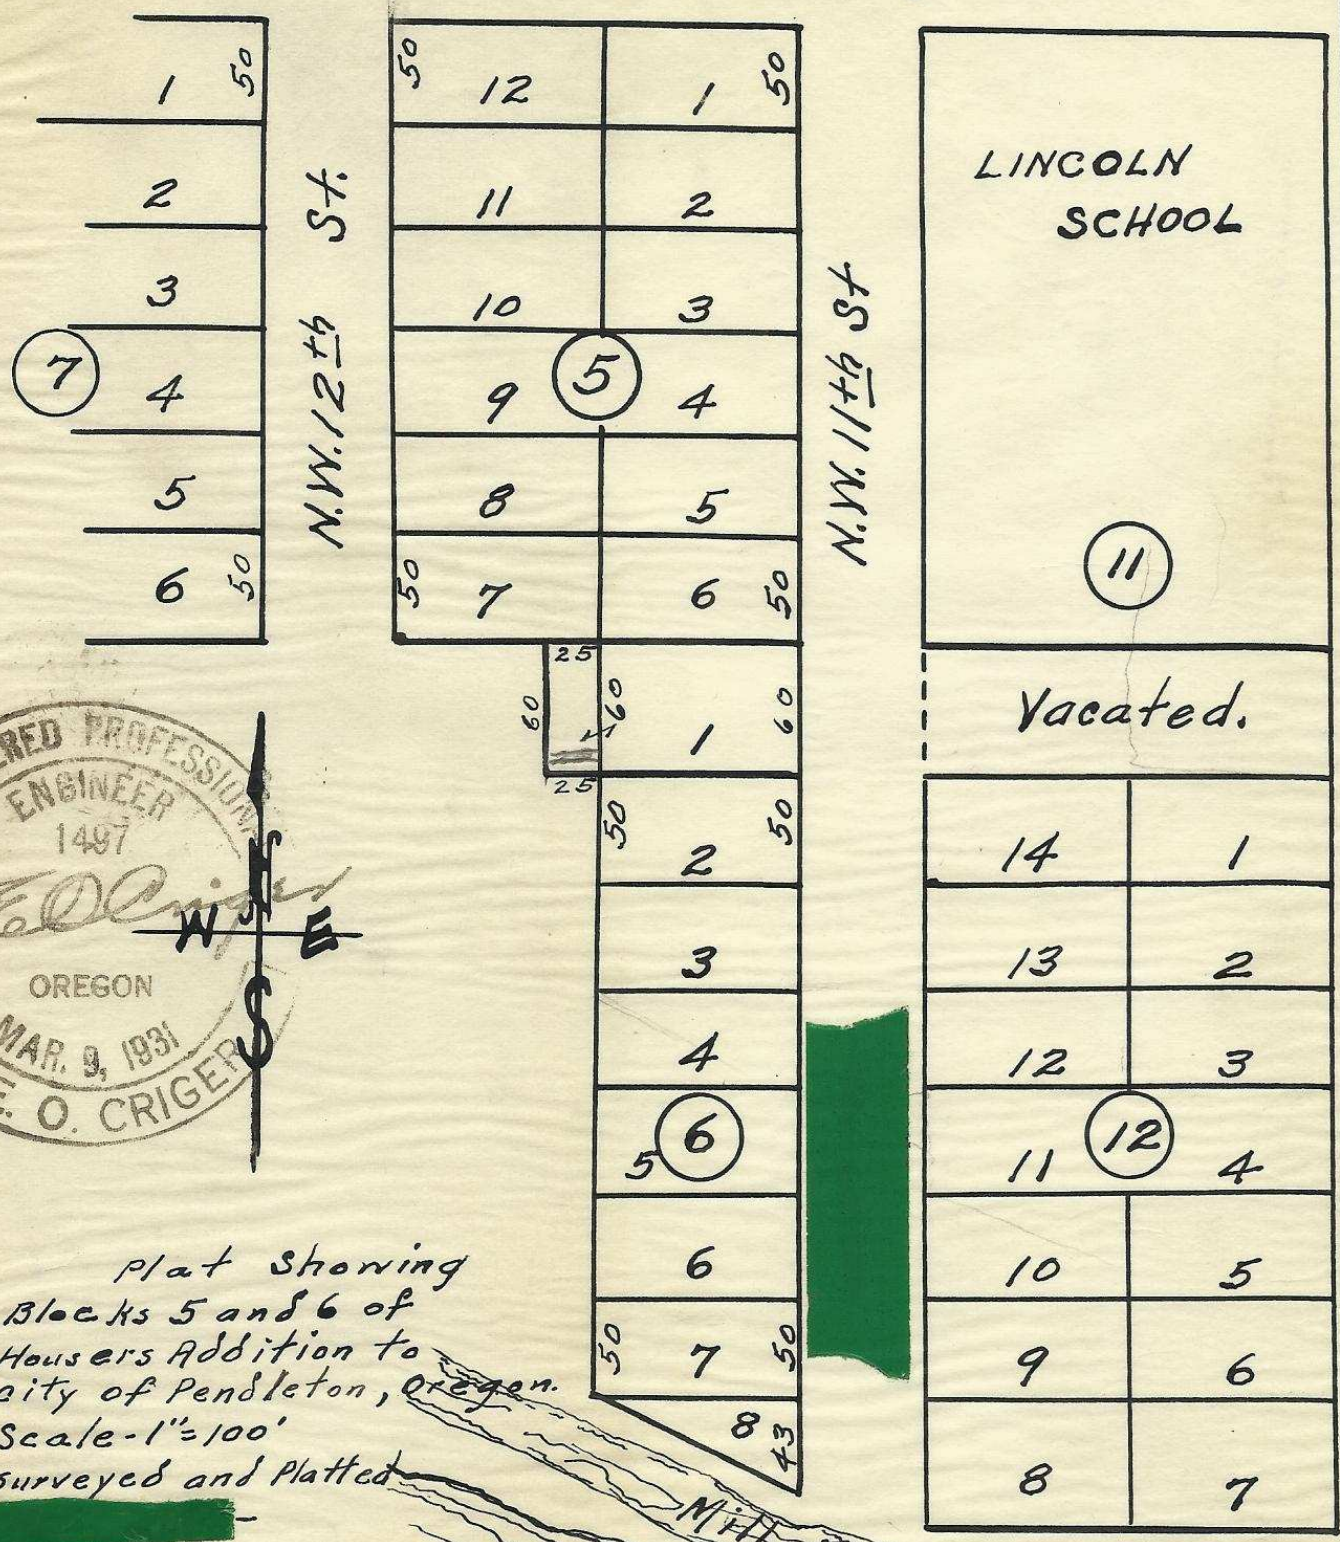 1 50
2
3
7
4
5
6 50
N.W. 12th St.
50 12 1 50
11 2
10 3
5
9 4
8 5
50 7 6 50
N.W. 11th St
LINCOLN
SCHOOL
11
Vacated.
25
60 60 1 60
25
50 2 50
3
4
6
5
6
50 7 50
8 43
14 1
13 2
12 3
12
11 4
10 5
9 6
8 7
PROFESSIONAL
ENGINEER
1497
E O Criger
OREGON
MAR. 9, 1931
E. O. CRIGER
N
W E
S
Plat Showing
Blocks 5 and 6 of
Housers Addition to
city of Pendleton, Oregon.
Scale-1"=100'
surveyed and Platted
Mill